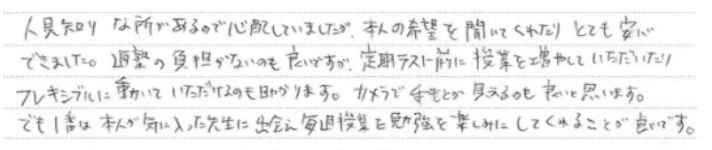 人見知りな所があるので心配していましたが、本人の希望を聞いてくれたりとても安心
できました。通塾の負担がないのも良いですが、定期テスト前に授業を増やしていただいたり
フレキシブルに動いていただけるのも助かります。カメラで手もとが見えるのも良いと思います。
でも1番は本人が気に入った先生に出会え毎週授業と勉強を楽しみにしてくれることが良いです。